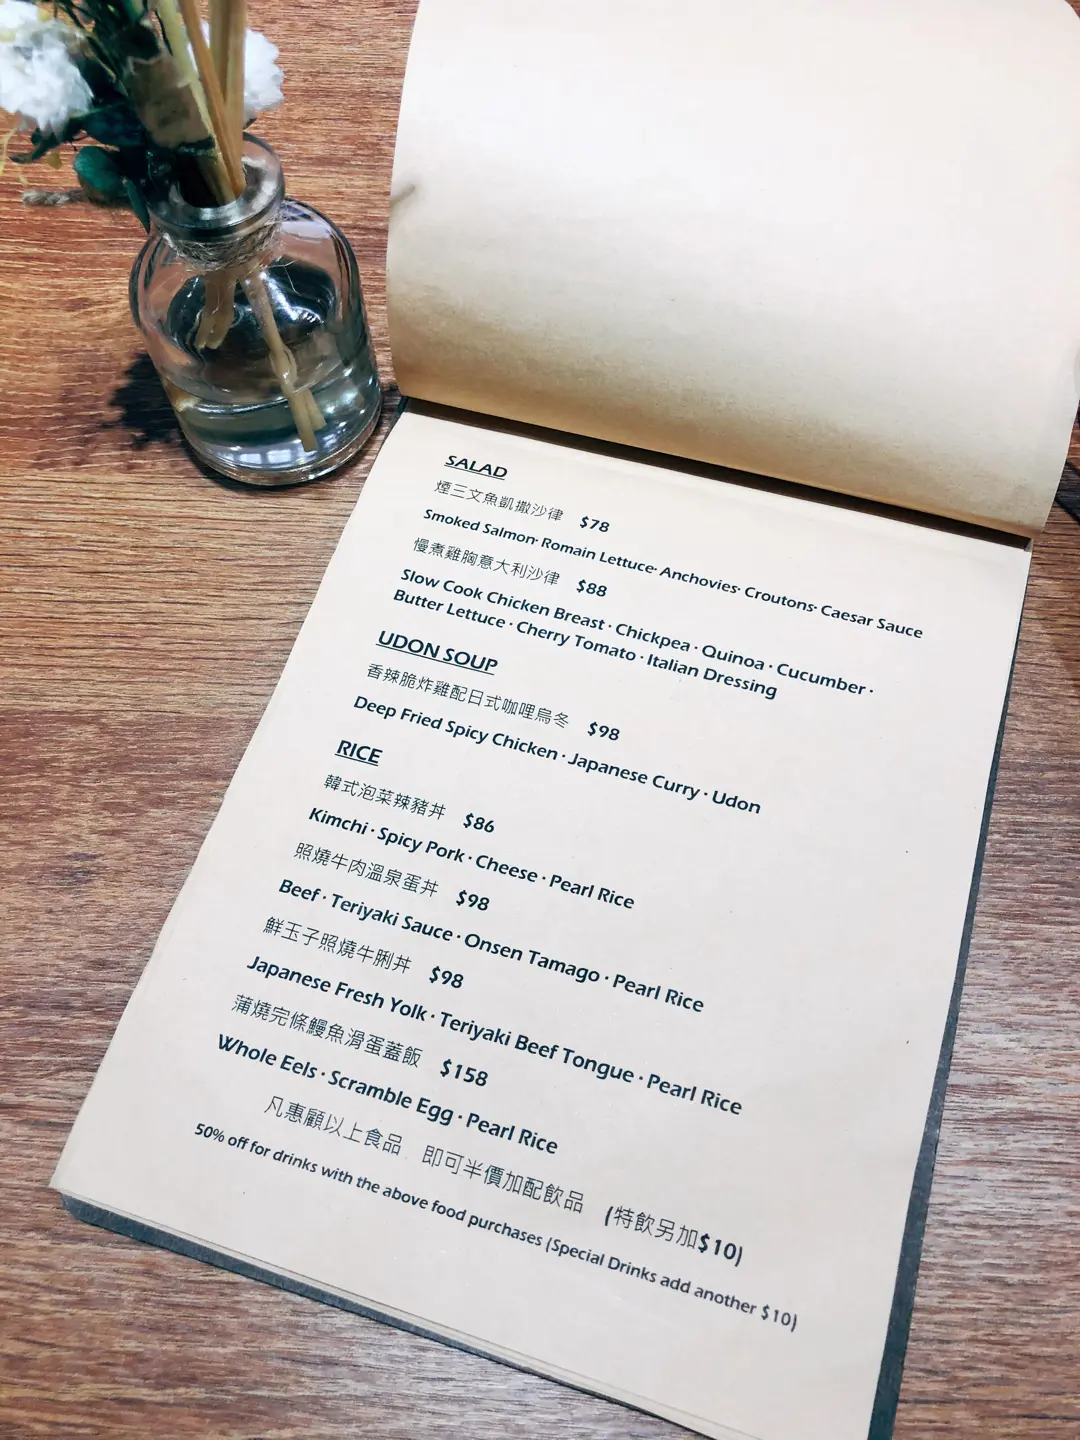 SALAD
煙三文魚凱撒沙律 $78
Smoked Salmon· Romain Lettuce· Anchovies· Croutons· Caesar Sauce
慢煮雞胸意大利沙律 $88
Slow Cook Chicken Breast · Chickpea · Quinoa · Cucumber ·
Butter Lettuce · Cherry Tomato · Italian Dressing
UDON SOUP
香辣脆炸雞配日式咖哩烏冬 $98
Deep Fried Spicy Chicken · Japanese Curry · Udon
RICE
韓式泡菜辣豬丼 $86
Kimchi · Spicy Pork · Cheese · Pearl Rice
照燒牛肉溫泉蛋丼 $98
Beef · Teriyaki Sauce · Onsen Tamago · Pearl Rice
鮮玉子照燒牛脷丼 $98
Japanese Fresh Yolk · Teriyaki Beef Tongue · Pearl Rice
蒲燒完條鰻魚滑蛋蓋飯 $158
Whole Eels · Scramble Egg · Pearl Rice
凡惠顧以上食品 即可半價加配飲品 (特飲另加$10)
50% off for drinks with the above food purchases (Special Drinks add another $10)